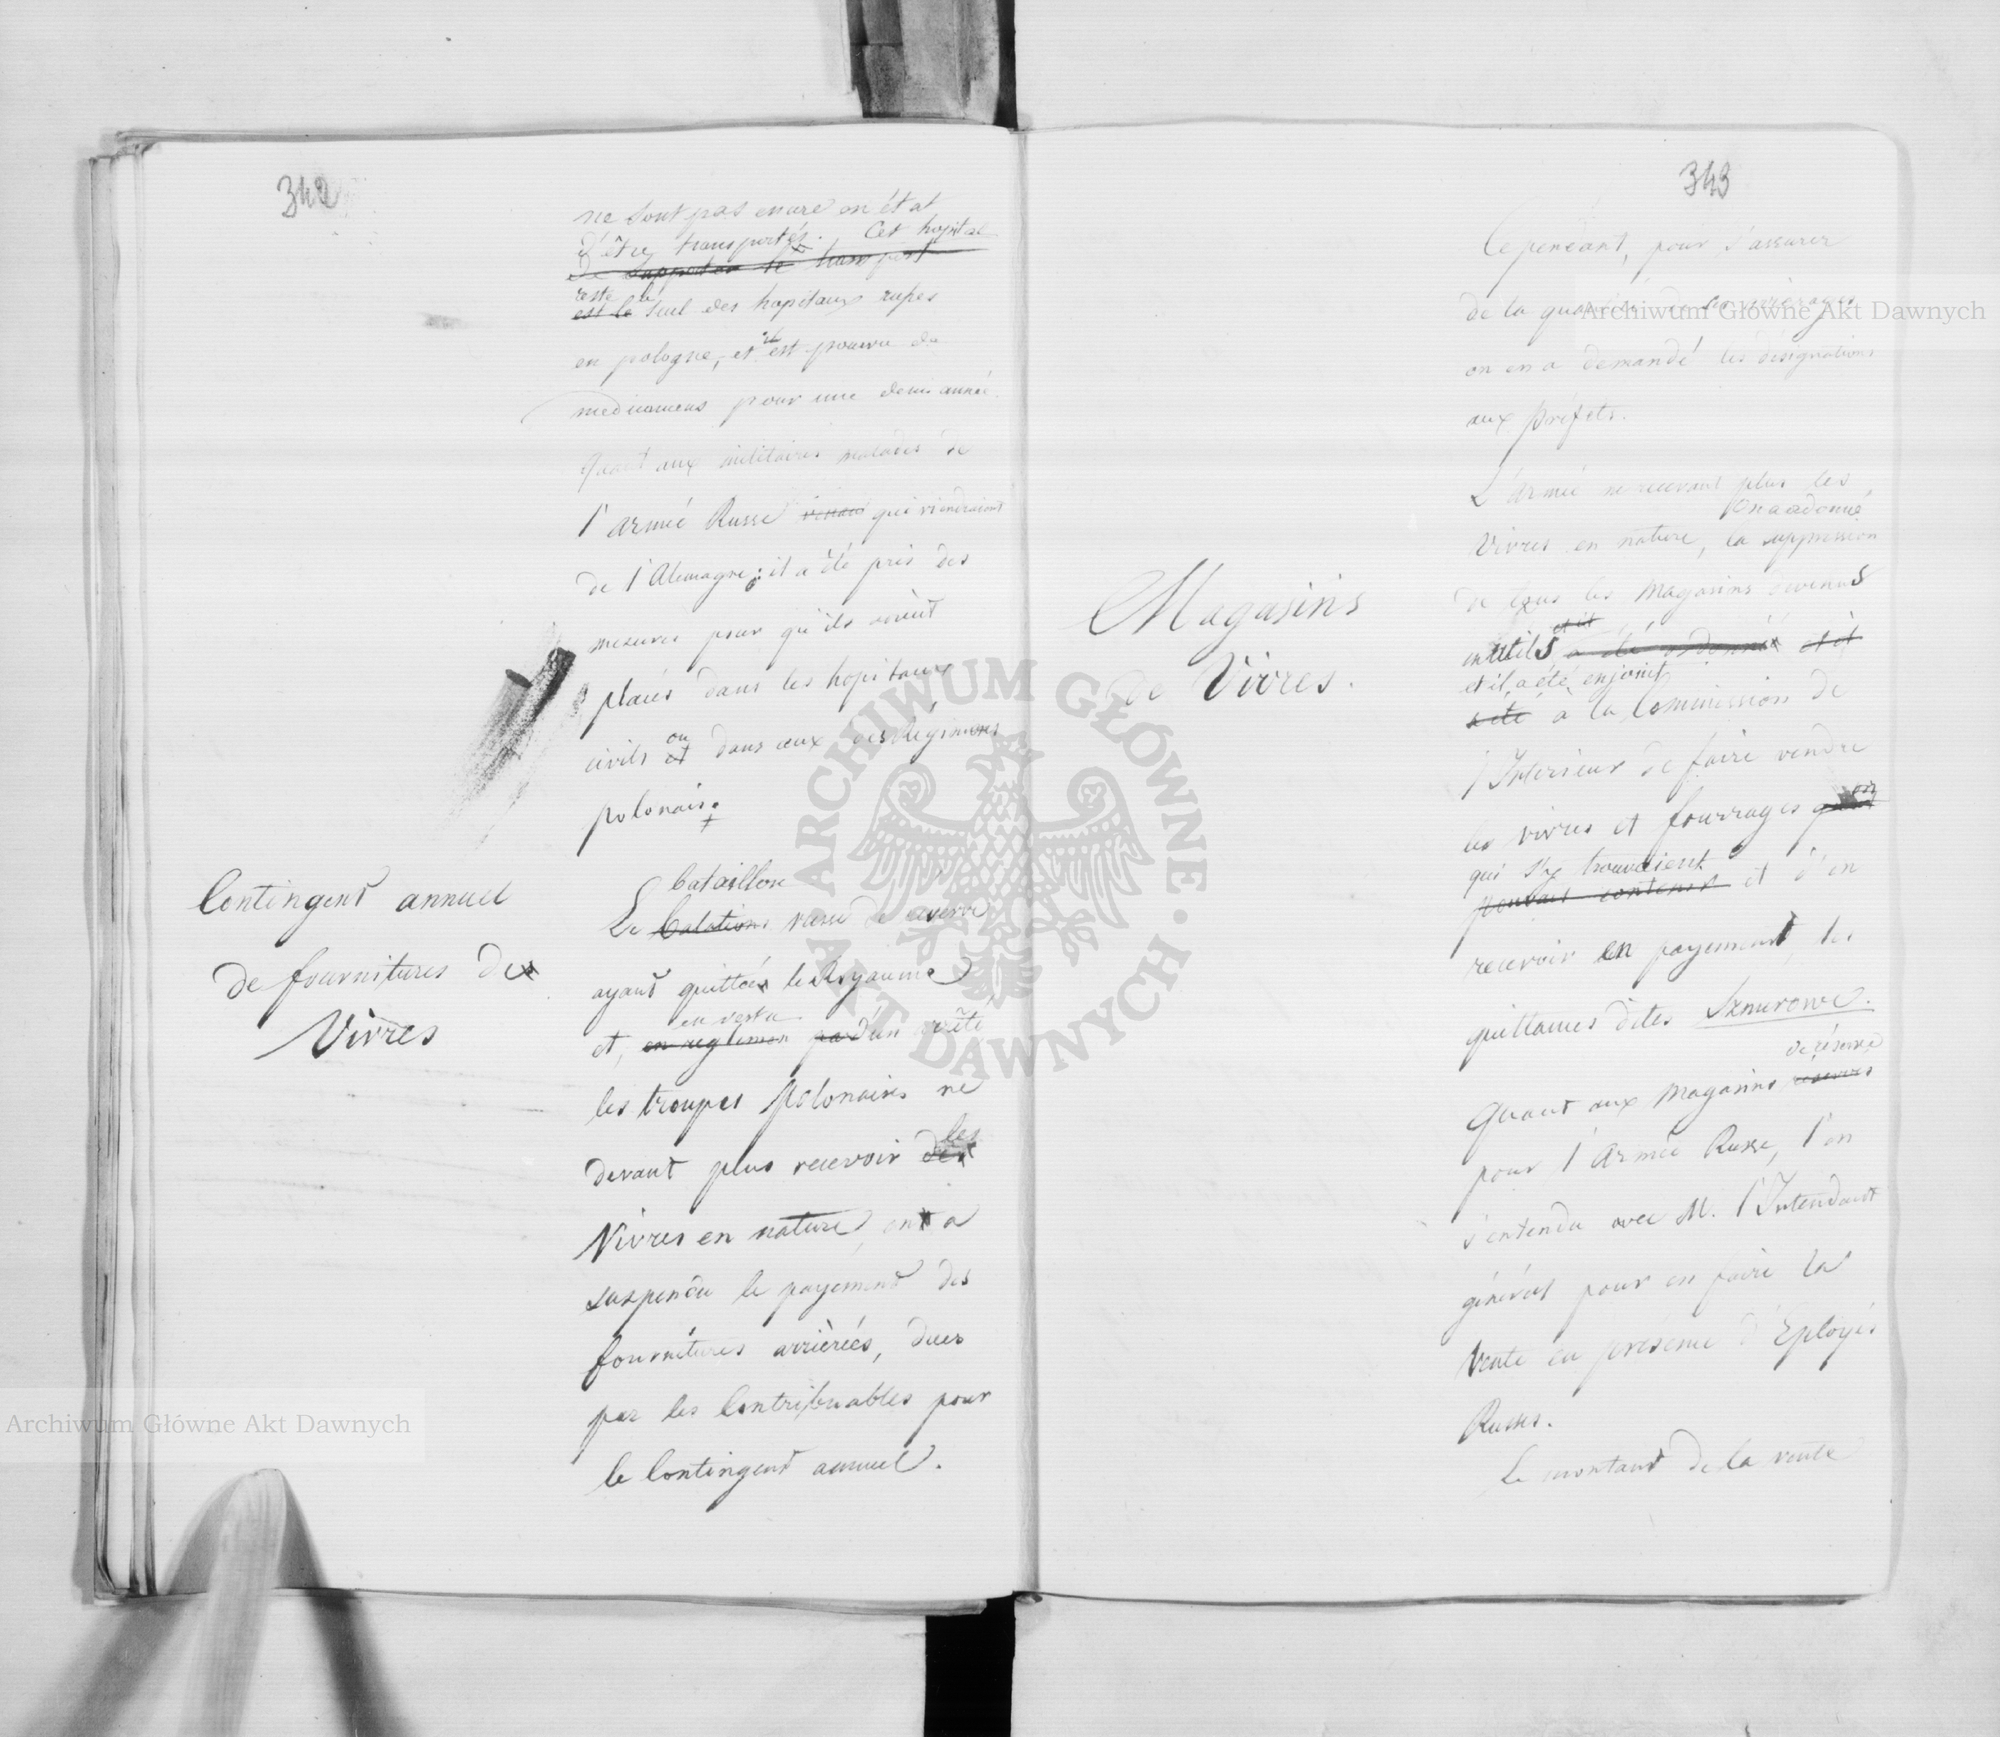 342
ne sont pas encore en état
d'être transportés. Cet hopital
de supporter le transport
reste le
est le seul des hopitaux russes
en pologne, et il est pourvu de
medicamens pour une demi année.
Quant aux militaires malades de
l'armée Russe venant qui viendraient
de l'Alemagne; il a été pris des
mesures pour qu'ils soient
placés dans les hopitaux
civils et ou dans ceux des Régimens
polonais.
Contingent annuel
de fournitures de
Vivres
bataillon
Le batations russe de reserve
ayant quittés le Royaume
en vertu
et, en reglemen par d'un arrêté
les troupes Polonaises ne
devant plus recevoir des les
Vivres en nature, ont a
suspendu le payement des
fournitures arrièrées, dues
par les Contribuables pour
le Contingent annuel.
343
Cependant, pour s'assurer
de la quantité de ses
on en a demandé les désignations
aux préfets.
L'Armée ne recevant plus les
On a adonné
Vivres en nature, la suppression
de tous les Magasins devenus
Magasins
de Vivres.
et il
inutils a été ordonné et il
et il a été enjoint
a été à la Commission de
l'Interieur de faire vendre
les vivres et fourrages
qui s'y trouvaient
pouvait contenir et d'en
recevoir en payement, les
quittances dites Sznurowe.
de réserve
Quant aux Magasins reserves
pour l'Armée Russe, l'on
s'entendu avec M. l'Intendant
général pour en faire la
Vente en présence d'Eployés
Russes.
Le montant de la vente
Archiwum Główne Akt Dawnych
Archiwum Główne Akt Dawnych
ARCHIWUM GŁÓWNE · AKT DAWNYCH ·